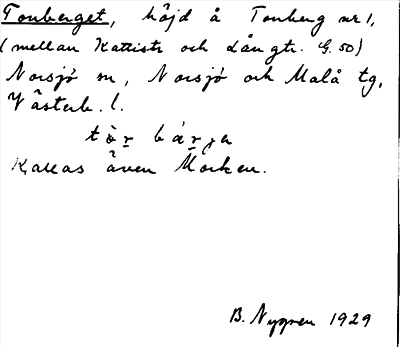 Tonberget, höjd å Tonberg nr 1,
(mellan Kattistr och Långtr. G. 50)
Norsjö sn, Norsjö och Malå tg,
Västerb. l.
Kallas även
B. Nygren 1929